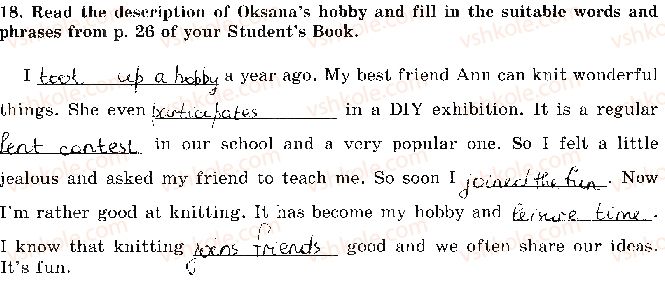 18. Read the description of Oksana's hobby and fill in the suitable words and
phrases from p. 26 of your Student's Book.
I took up a hobby a year ago. My best friend Ann can knit wonderful
things. She even participates in a DIY exhibition. It is a regular
contest in our school and a very popular one. So I felt a little
jealous and asked my friend to teach me. So soon I joined the fun. Now
I'm rather good at knitting. It has become my hobby and leisure time.
I know that knitting joins friends good and we often share our ideas.
It's fun.